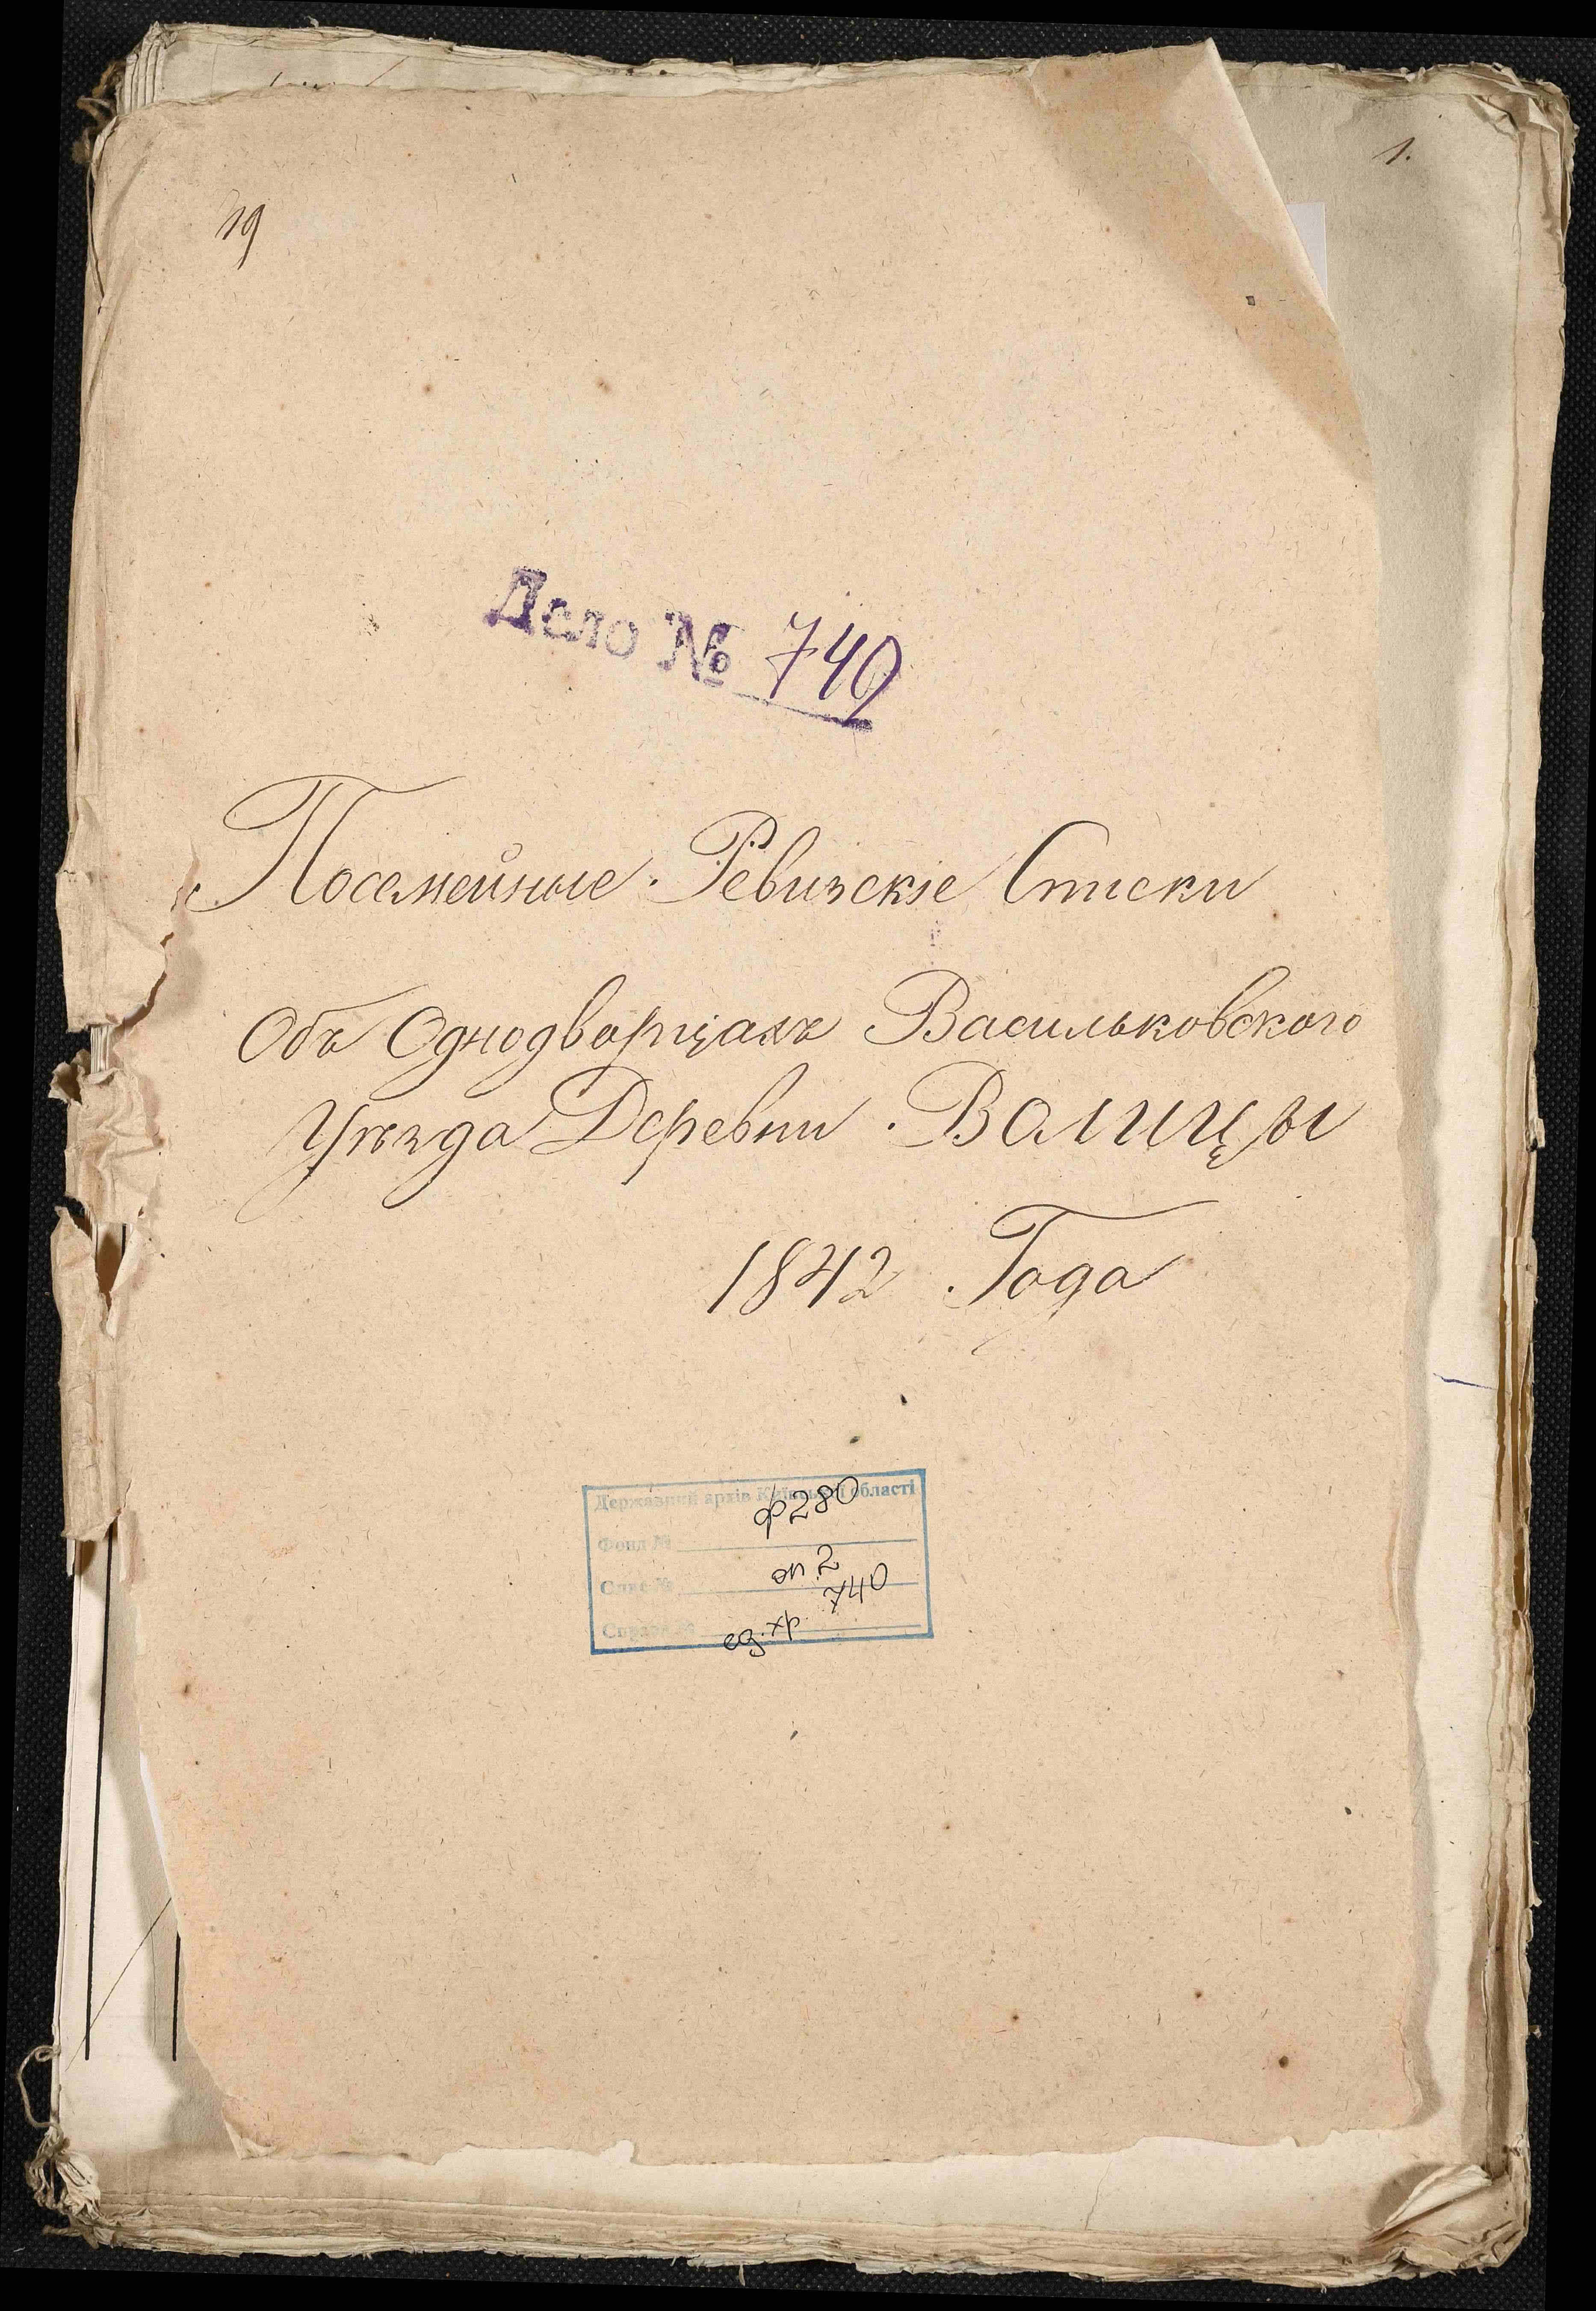 1.
19
Дело № 740
Посемейные Ревизскіе Списки
Объ Однодворцахъ Васильковского
Уѣзда Деревни Волицы
1842 Года
Державний архів Київської області
ф 280
Фонд №
оп. 2
Опис №
740
ед. хр.
Справа №